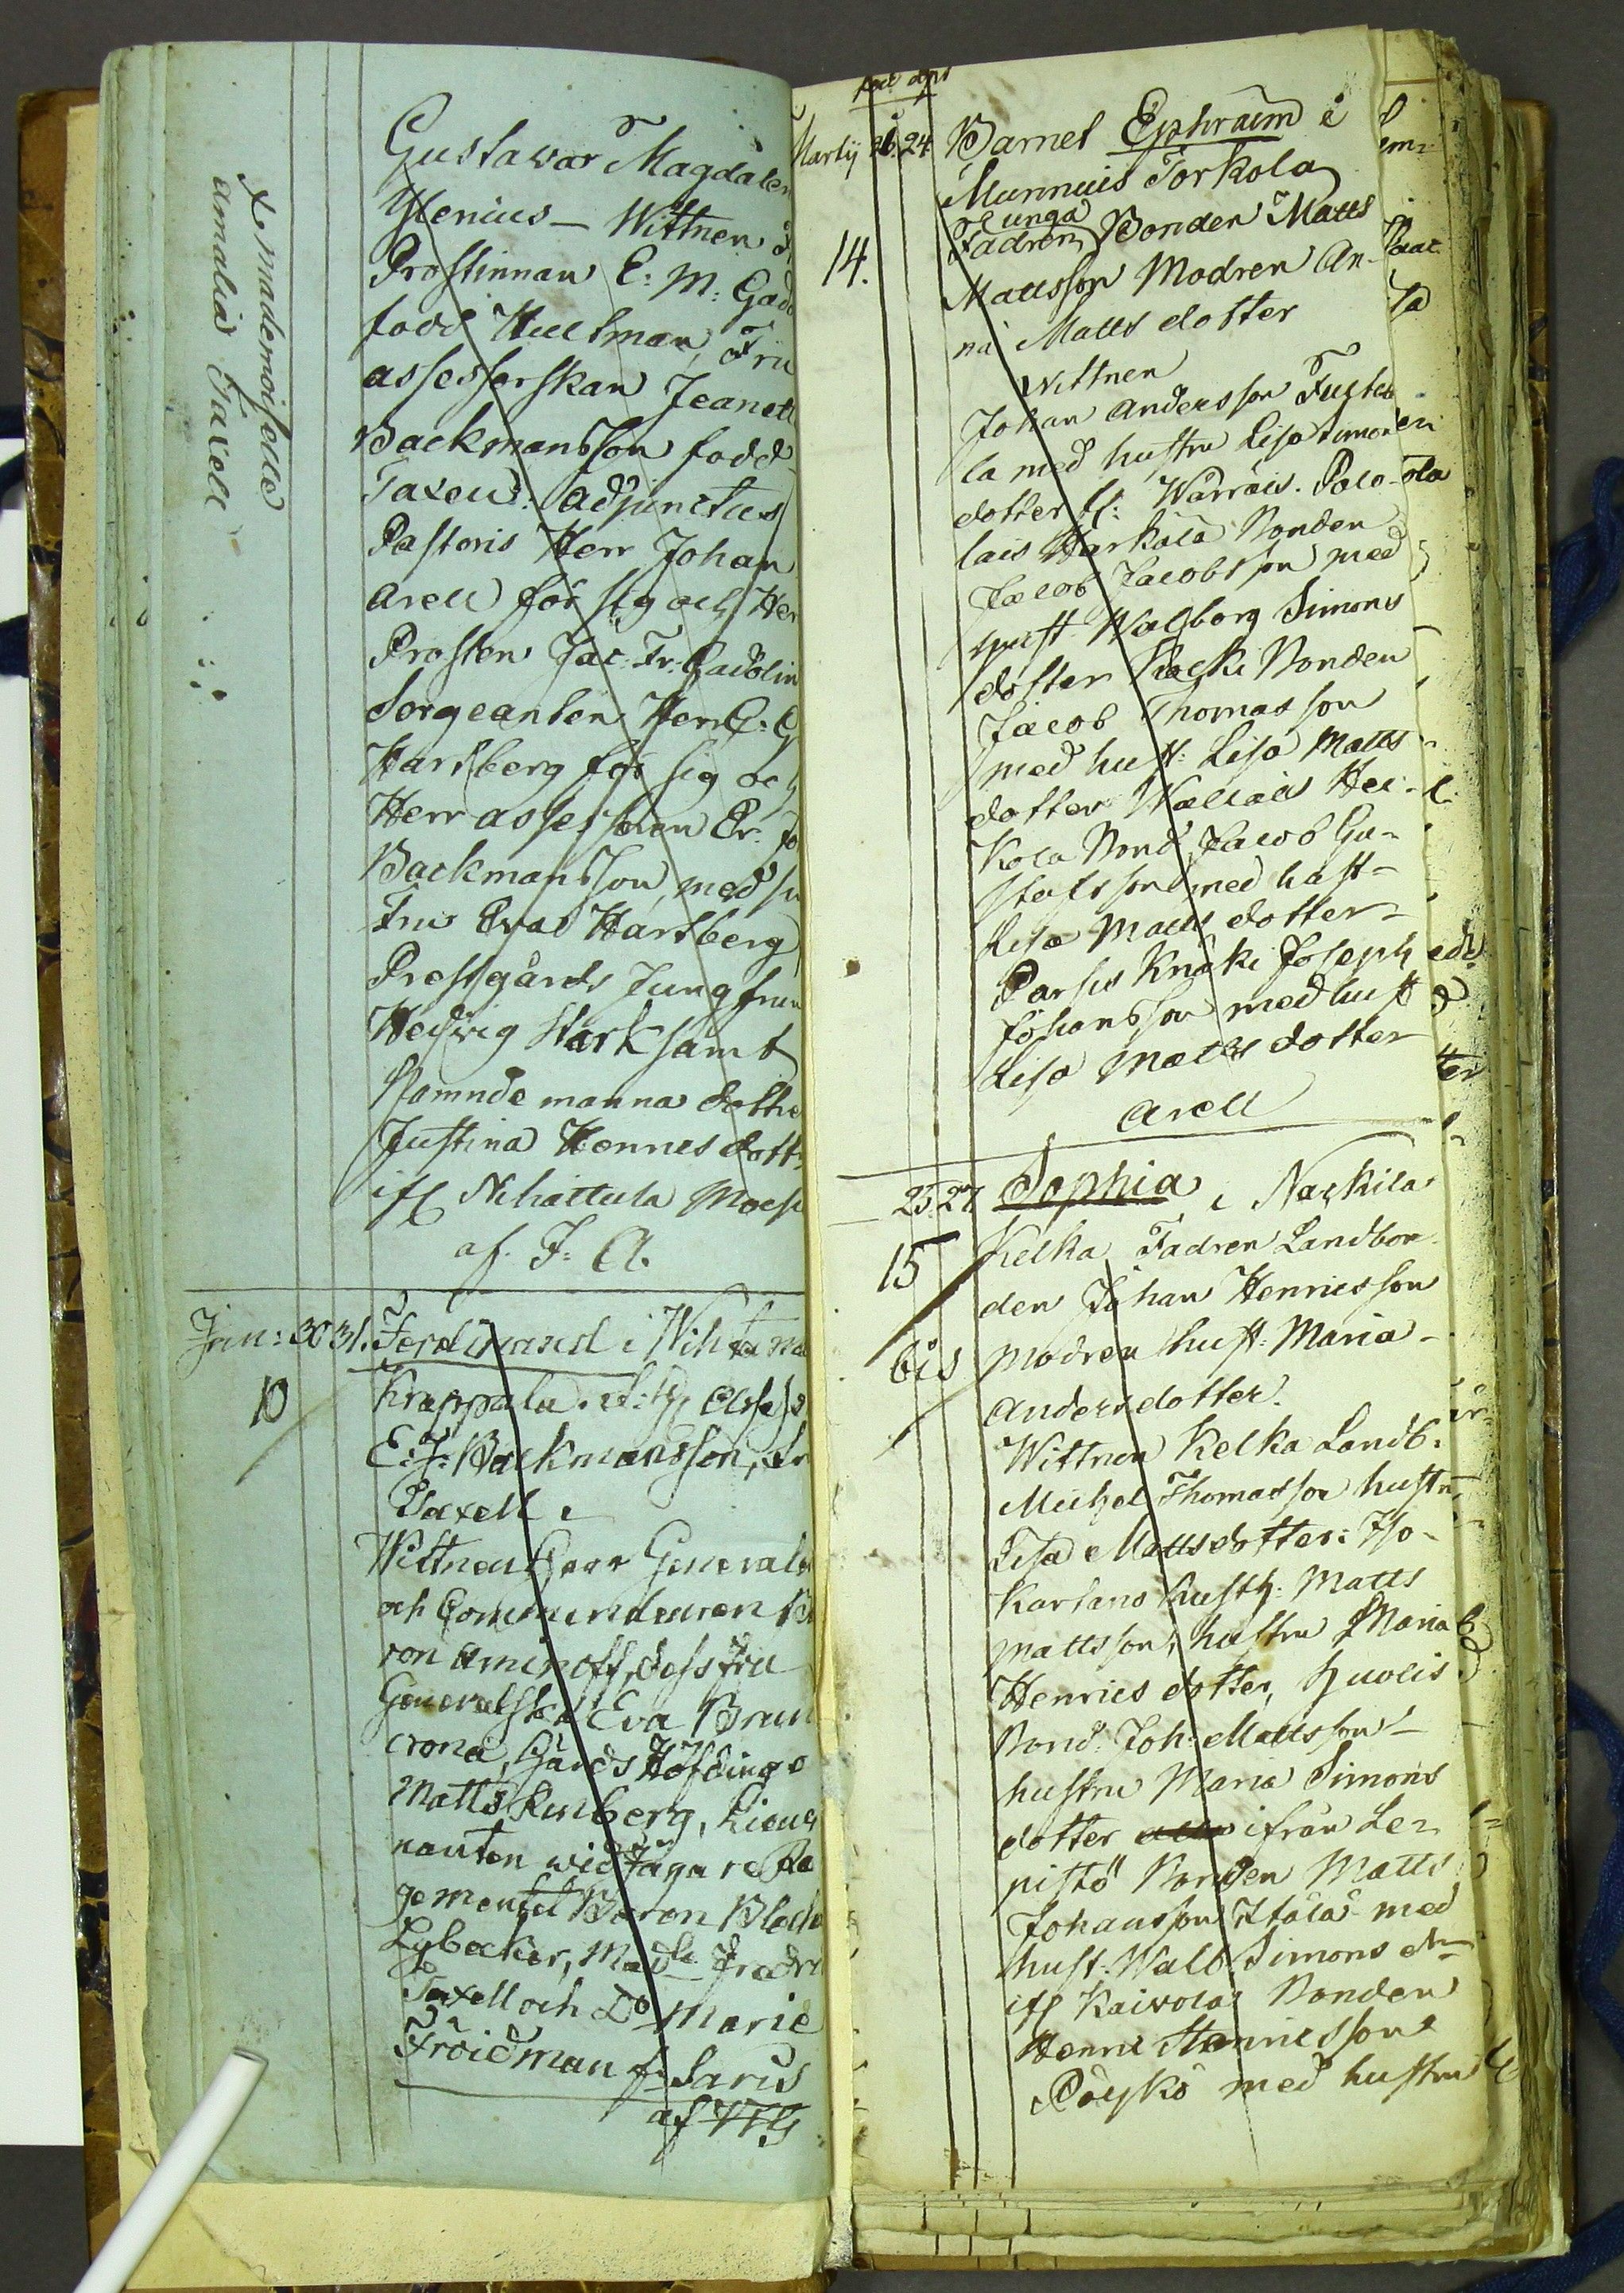 Gustawa Magdalen
Ylenius - Wittnen
Prostinnan E: M: Gado
född Hultman, Fru
assessorskan Jeanett
Backmansson född
Taxell: Adjunctus
Pastoris Herr Johan
Arell för sig och Her
Prosten Jac: Fr: Gadolin
Sergeanten Herr C: G
Hartberg för sig och
Herr assessoren Er. Jo
Backmansson, med sin
Fru Eva Hartberg
Prestgårds Jungfrun
Hedwig Stark samt
Nämnde manna dotte
Justina Hennes dott
ifr Nihattula Moisi
af. J: A.
x mademoiselle
Amalia Taxell
Jan: 30 31. Ferdinand i Wihatma
10
Krappala. f: H. Asses
E: J: Backmansson, Fr
Taxell
Wittnen Herr General
och Commendeuren Ba
ron Aminoff, dess Fru
Generalskan Eva Brun
crona, Härads Höfding
Matts Limberg, Lieut
nanten wid Jägare Re
gementet Baron Bleck
Lybecker, Madle Fredri
Taxell och Do Marie
Fröidman f. Saris
af
föd döpt
Martij 21. 24 Barnet Ephraim i
Munnuis Torkola
unga
Fadren Bonden Matts
14.
Mattsson Modren An-
na Matts dotter
Wittnen
Johan Andersson
la med hustru Lisa Simons
dotter fr: Warrois. Palo-
lais Harkala Bonden
Jacob Jacobsson med
hust. Walborg Simons
dotter Bonden
Jacob Thomasson
med hust: Lisa Matts
dotter Wallais Hei-
kola Bond Jacob Gu-
stafsson med hust-
Lisa Matts dotter-
Parsis Knäki Joseph
Johansson med hust
Lisa Matts dotter
Arell
25. 27 Sophia i Nackila
15
Kelka Fadren Landbon-
den Johan Henricsson
bis
Modren hust: Maria
Andersdotter.
Wittnen Kelka Landb.
Michel Thomasson hustru
Lisa Mattsdotter: Iso-
Kartano Husth: Matts
Mattsson, hustru Maria
Henrics dotter,
Bond. Joh: Mattsson
hustru Maria Simons
dotter ifrån Le-
pistö Bonden Matts
Johansson Itälä med
hust. Walb. Simons dr
ifr Kaivola Bonden
Henric Henricsson
Pöyskö med hustru